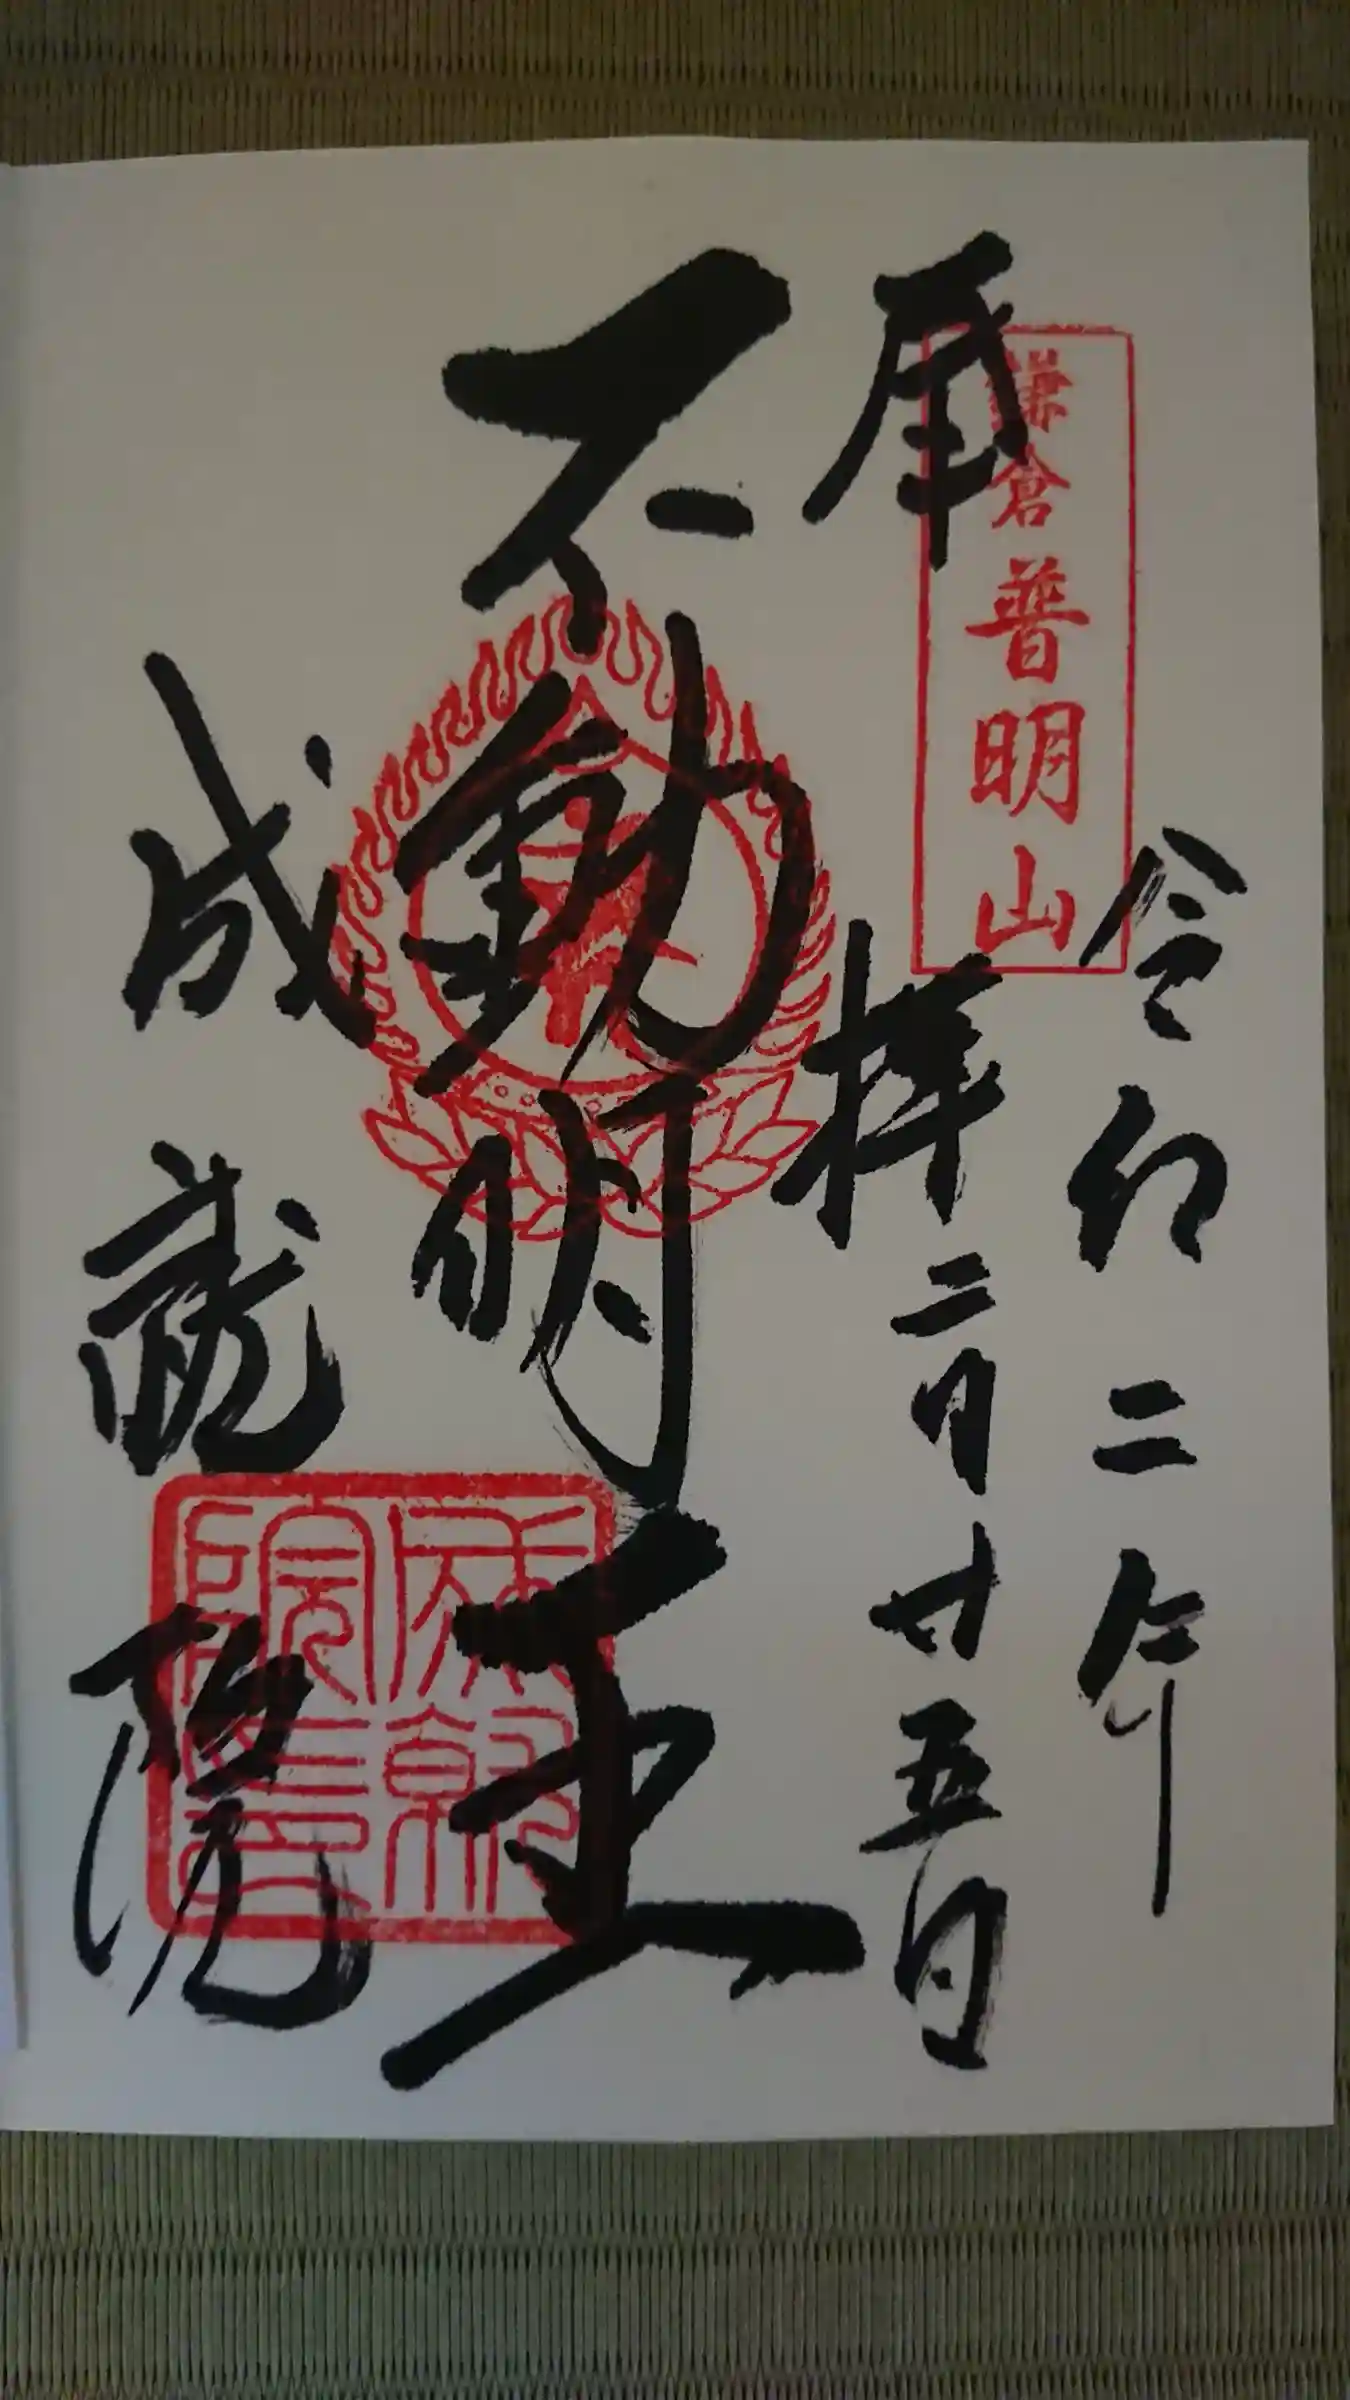 令和二年
奉拝 二月廿五日
鎌倉普明山
不動明王
成就院
成就院印